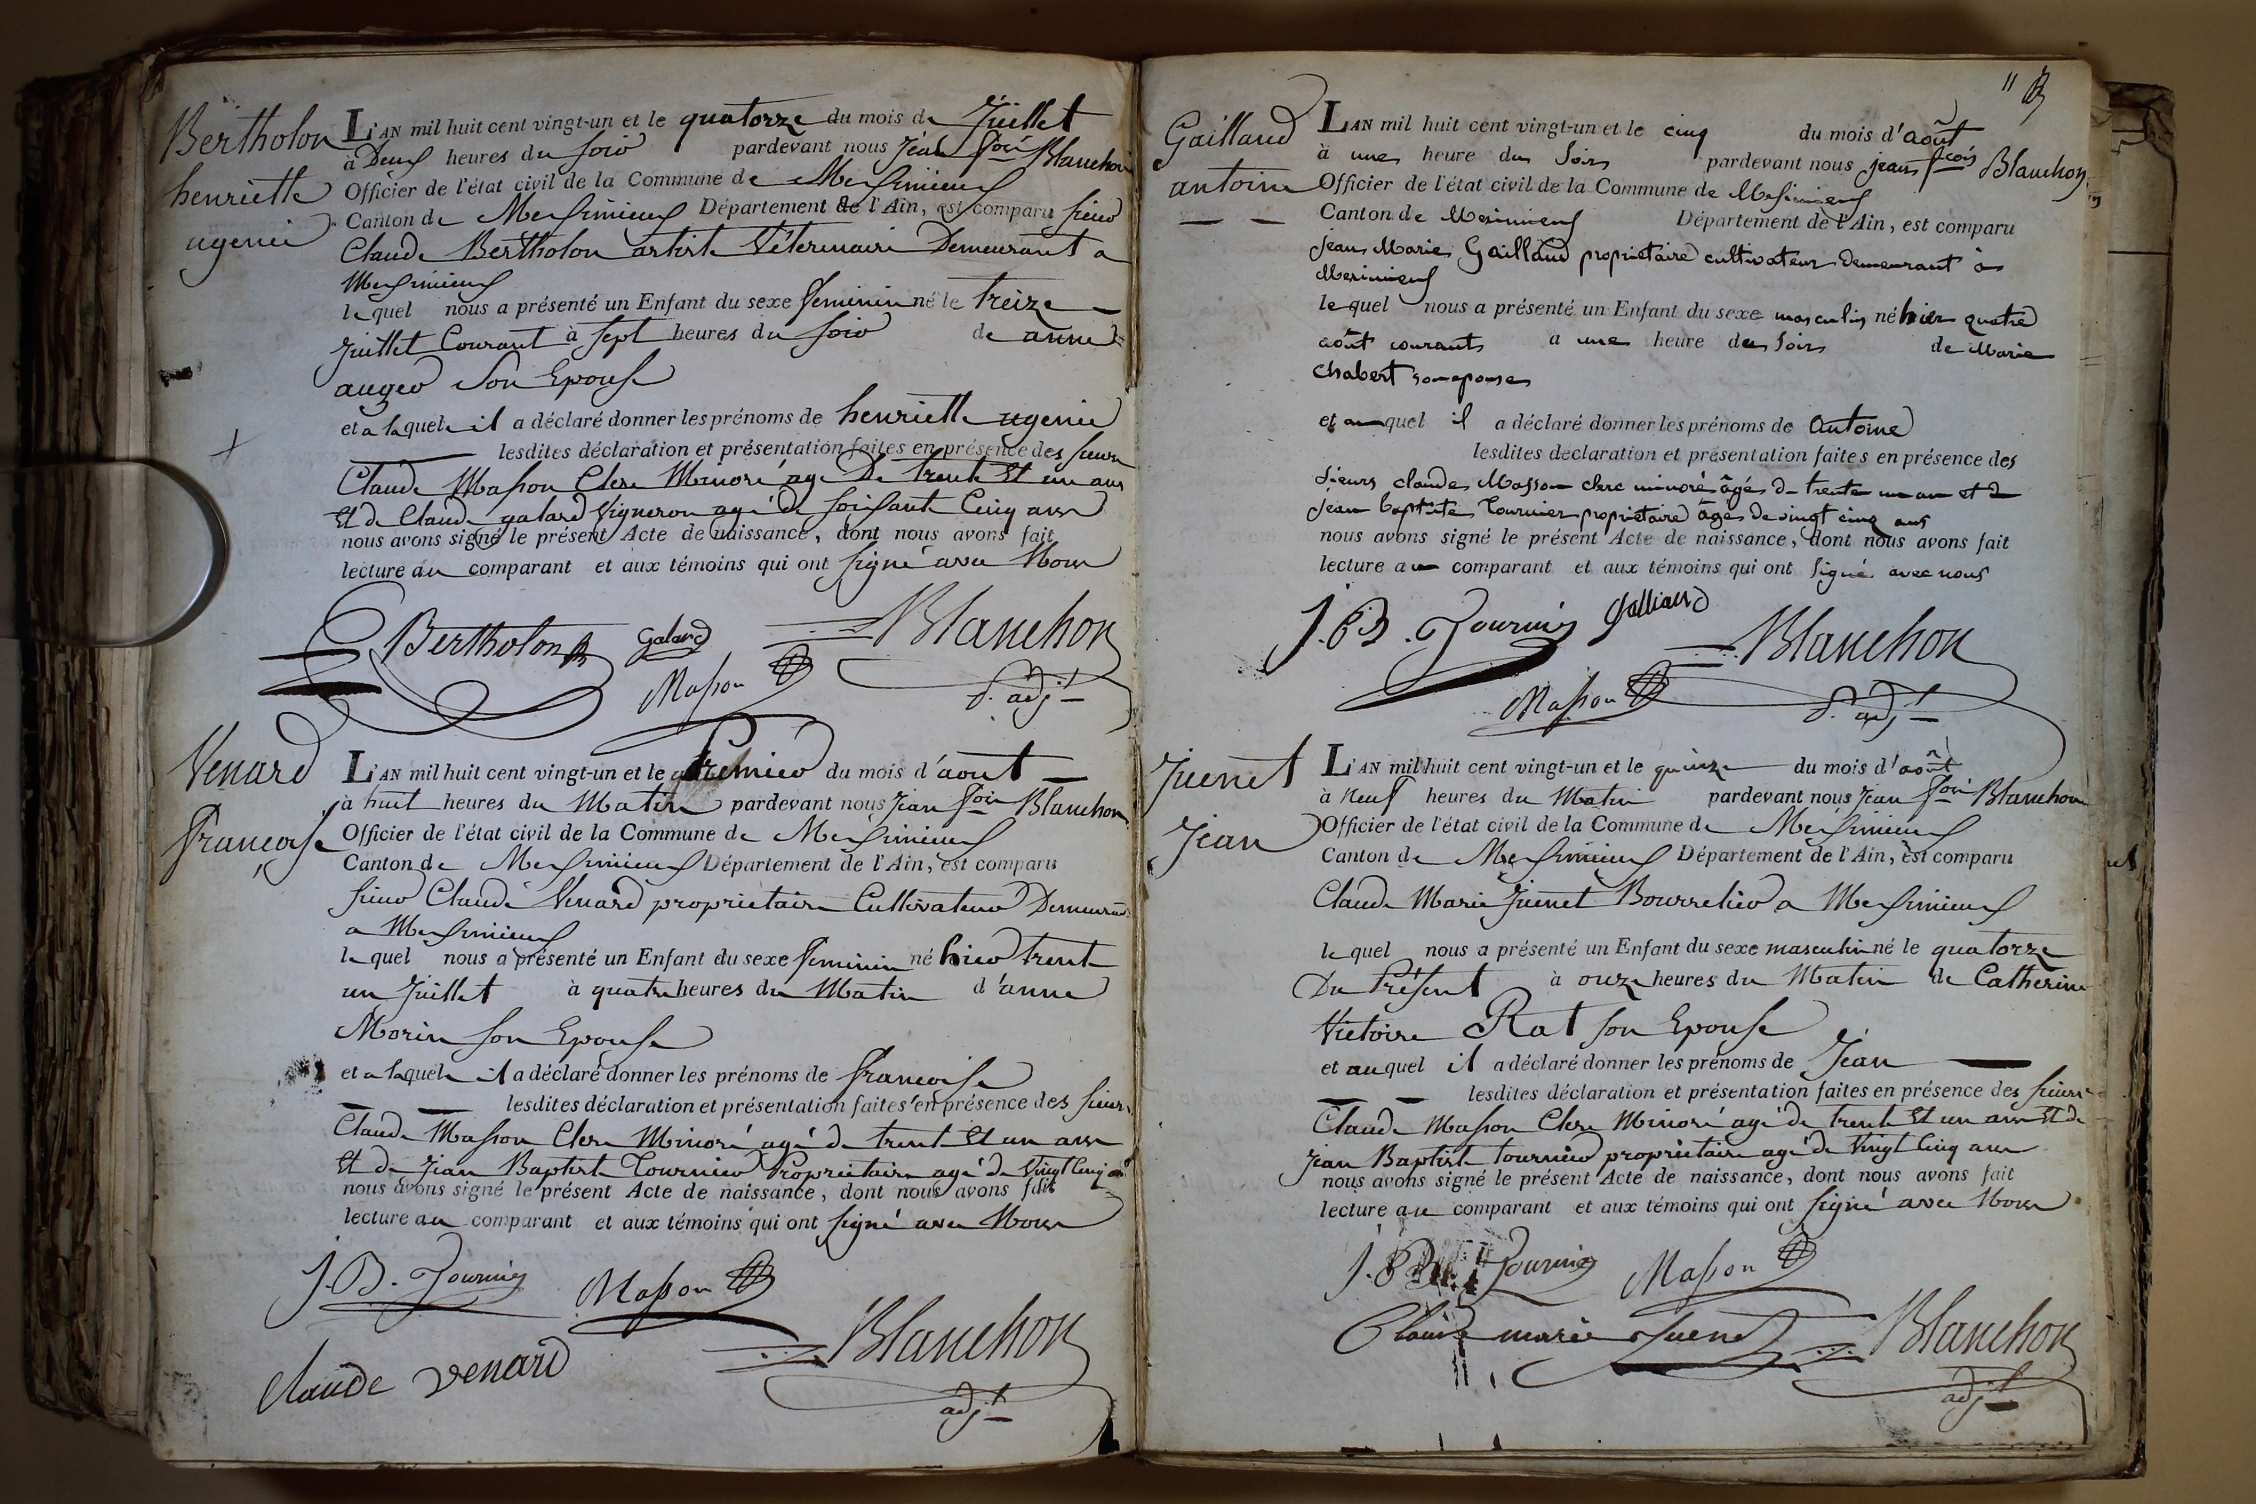 Bertholon
henriette
ugenie
L'AN mil huit cent vingt-un et le quatorze du mois de Juillet
à Deux heures du soir pardevant nous Jean fçois Blanchon
Officier de l'état civil de la Commune de Meximieux
Canton de Meximieux Département de l'Ain, est comparu sieur
Claude Bertholon artiste Véterinaire Demeurant a
Meximieux
le quel nous a présenté un Enfant du sexe feminin né le treize
Juillet Courant à sept heures du soir de anne
auger son Epouse
et a laquele il a déclaré donner les prénoms de henriette ugenie
lesdites déclaration et présentation faites en présence des sieurs
Claude Masson Clerc Minoré agé De trente Et un ans
Et de Claude galand Vigneron agé de soixante Cinq ans
nous avons signé le présent Acte de naissance, dont nous avons fait
lecture au comparant et aux témoins qui ont signé avec Nous
Bertholon Galand Blanchon
Masson adjt
Venard
françoise
L'AN mil huit cent vingt-un et le Premier du mois d'aout
à huit heures du Matin pardevant nous Jean fçois Blanchon
Officier de l'état civil de la Commune de Meximieux
Canton de Meximieux Département de l'Ain, est comparu
sieur Claude Venard propriétaire Cultivateur Demeurant
a Meximieux
le quel nous a présenté un Enfant du sexe feminin né hier trente
un Juillet à quatre heures du Matin d'anne
Morin son Epouse
et a laquele il a déclaré donner les prénoms de françoise
lesdites déclaration et présentation faites en présence des sieurs
Claude Masson Clerc Minoré agé de trente Et un ans
Et de Jean Baptiste Tournier Propriétaire agé de Vingt Cinq ans
nous avons signé le présent Acte de naissance, dont nous avons fait
lecture au comparant et aux témoins qui ont signé avec Nous
J.B. Tournier Masson
Blanchon
claude venard
adjt
11
Gailland
antoine
L'AN mil huit cent vingt-un et le cinq du mois d'août
à une heure du soir pardevant nous jean fçois Blanchon
Officier de l'état civil de la Commune de Meximieux
Canton de Meximieux Département de l'Ain, est comparu
jean Marie Gailland propriétaire cultivateur demeurant à
Meximieux
le quel nous a présenté un Enfant du sexe masculin né hier quatre
août courant a une heure du soir de Marie
chabert son epouse
et auquel il a déclaré donner les prénoms de antoine
lesdites déclaration et présentation faites en présence des
sieurs claude Masson clerc minoré âgé de trente un an et de
jean baptiste Tournier propriétaire âgé de vingt cinq ans
nous avons signé le présent Acte de naissance, dont nous avons fait
lecture au comparant et aux témoins qui ont signé avec nous
J.B. Tournier Galliand Blanchon
Masson adjt
Juenet
Jean
L'AN mil huit cent vingt-un et le quinze du mois d'août
à Neuf heures du Matin pardevant nous Jean fçois Blanchon
Officier de l'état civil de la Commune de Meximieux
Canton de Meximieux Département de l'Ain, est comparu
Claude Marie Juenet Bourrelier a Meximieux
le quel nous a présenté un Enfant du sexe masculin né le quatorze
Du Présent à onze heures du Matin de Catherine
Victoire Rat son Epouse
et auquel il a déclaré donner les prénoms de Jean
lesdites déclaration et présentation faites en présence des sieurs
Claude Masson Clerc Minoré agé de trente Et un ans Et de
Jean Baptiste tournier propriétaire agé de Vingt Cinq ans
nous avons signé le présent Acte de naissance, dont nous avons fait
lecture au comparant et aux témoins qui ont signé avec Nous
J.B. Tournier Masson
Claude marie Juenet Blanchon
adjt